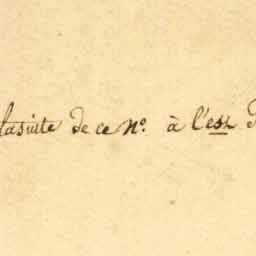 la suite de ce nº. à l'est d